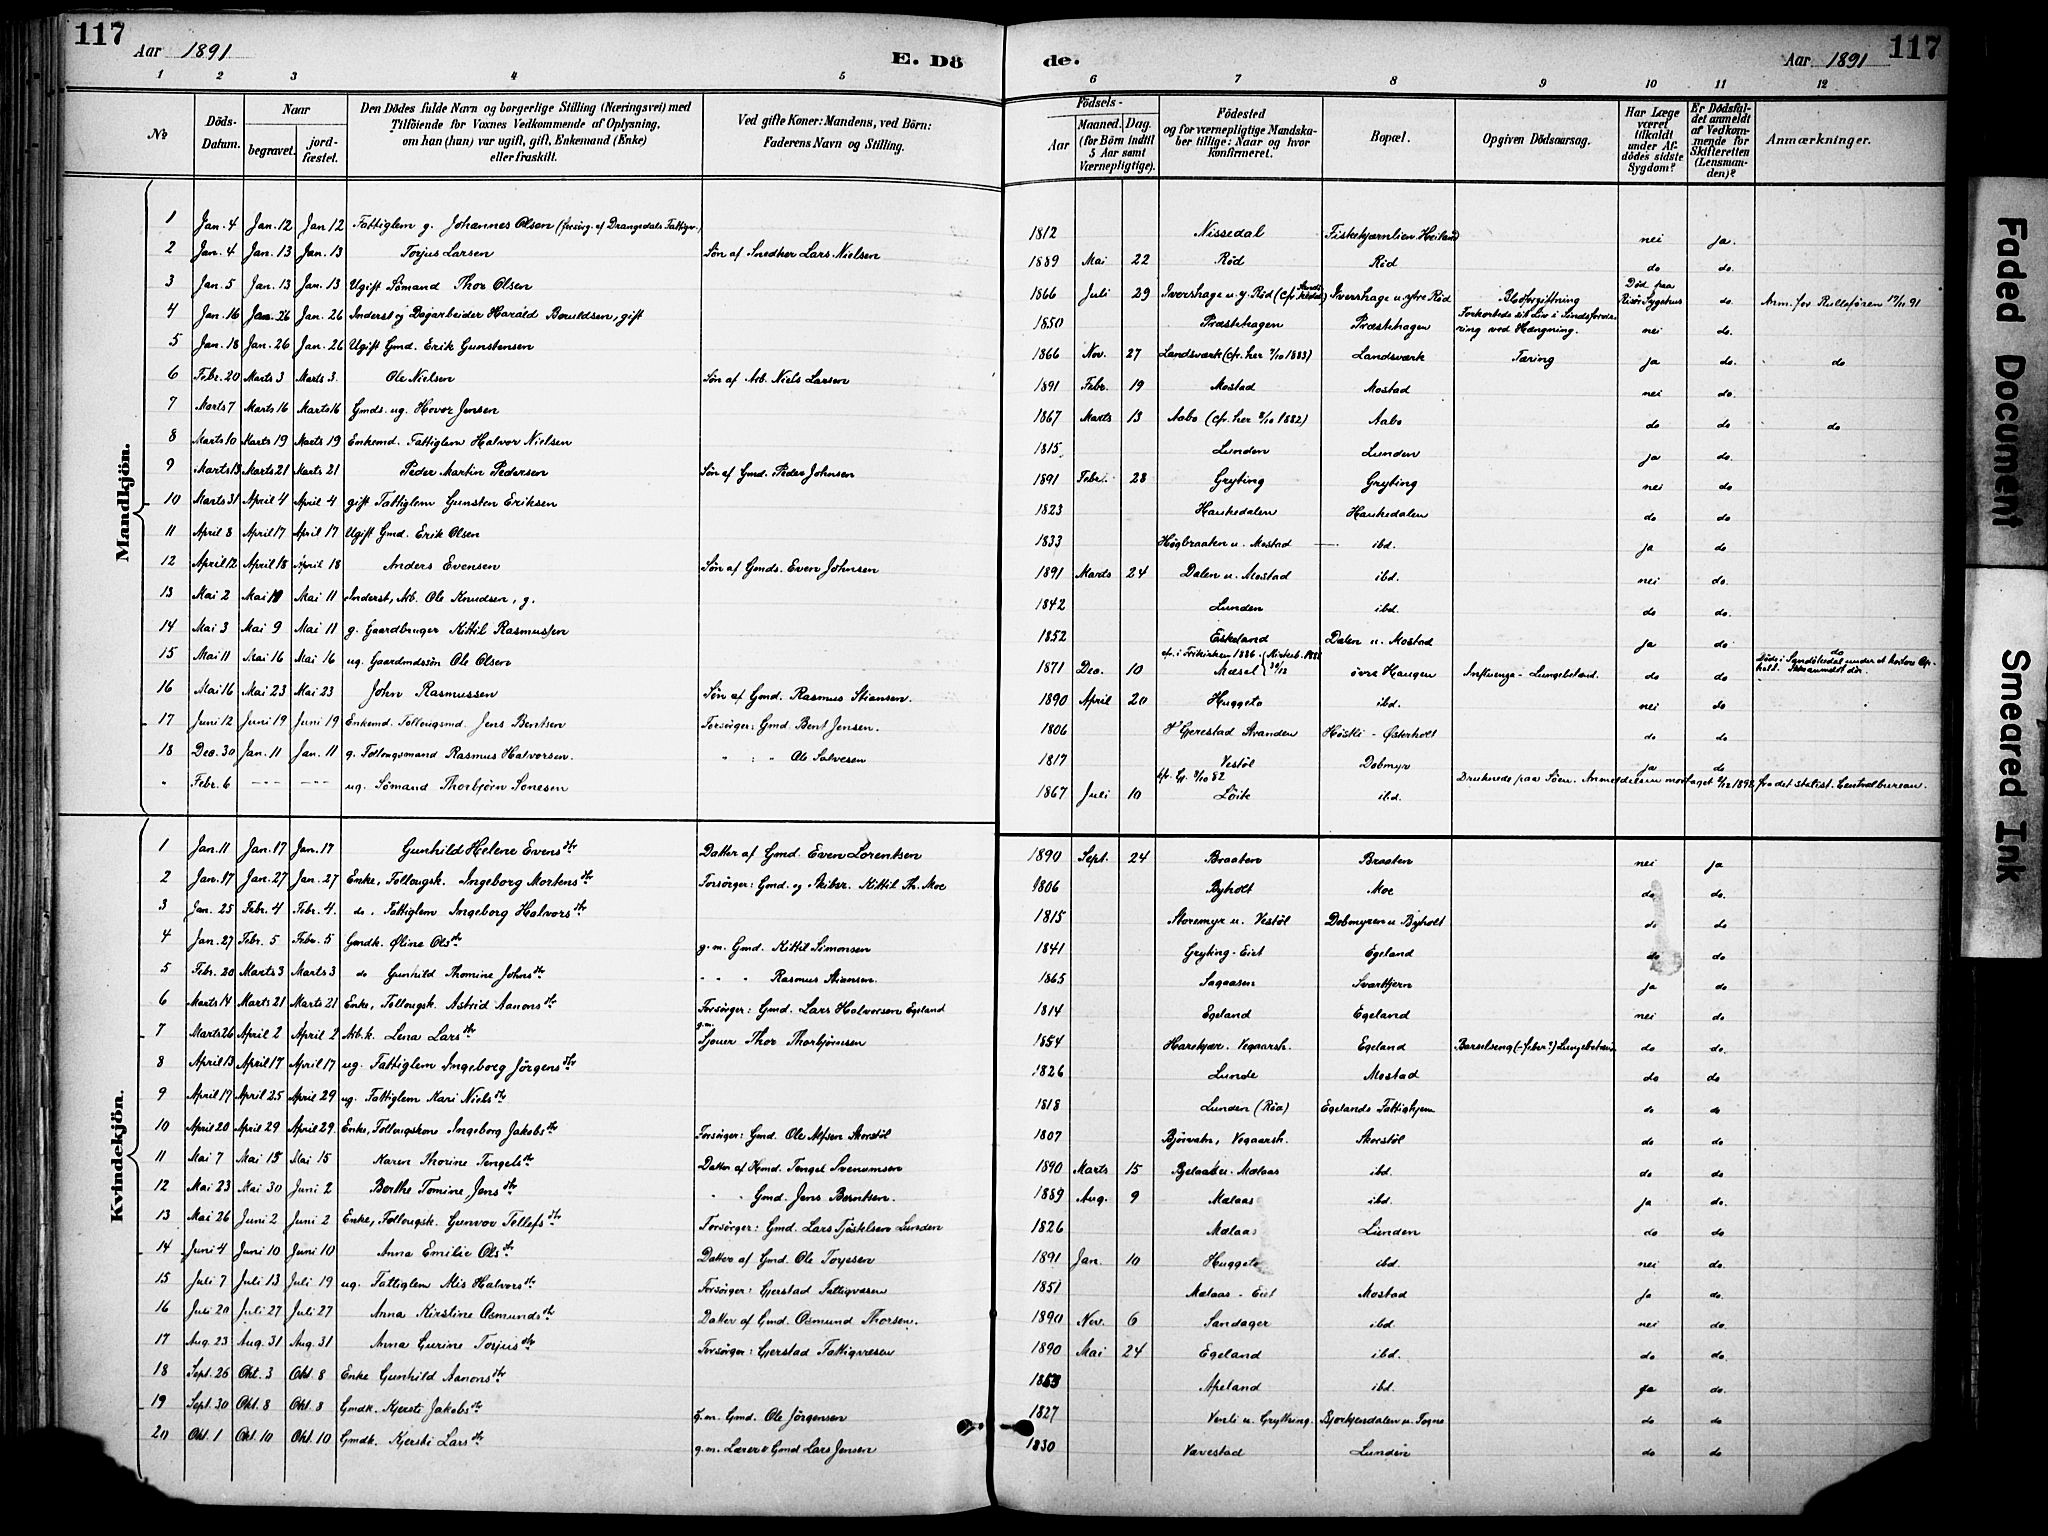 117
Aar 1891
E. Dö
de.
Aar 1891
117
1 2 3 4 5 6 7 8 9 10 11 12
No
Döds-Datum.
Naar
begravet.
jord-fæstet.
Den Dödes fulde Navn og borgerlige Stilling (Næringsvei) med
Tilföiende for Voxnes Vedkommende af Oplysning,
om han (hun) var ugift, gift, Enkemand (Enke)
eller fraskilt.
Ved gifte Koner: Mandens, ved Börn:
Faderens Navn og Stilling.
Födsels-
Aar
Maaned. Dag.
(for Börn indtil
5 Aar samt
Værnepligtige).
Födested
og for værnepligtige Mandska-
ber tillige: Naar og hvor
konfirmeret.
Bopæl.
Opgiven Dödsaarsag.
Har Læge
været
tilkaldt
under Af-
dödes sidste
Sygdom?
Er Dödsfal-
det anmeldt
af Vedkom-
mende for
Skifteretten
(Lensman-
den)?
Anmærkninger.
Mandkjön.
1 Jan. 4 Jan. 12 Jan 12 Fattiglem g. Johannes Olsen (forsörg. af Drangedals Fattigv.) 1812 Nissedal Fiskekjærnlien Heiland nei ja.
2 Jan. 4 Jan. 13 Jan. 13 Torjus Larsen Sön af Snedker Lars Nielsen 1889 Mai 22 Röd Röd do do.
3 Jan. 5 Jan. 13 Jan. 13 Ugift Sömand Thor Olsen 1866 Juli 29 Ivershage u. y. Röd Ivershage u. ytre Röd Blodforgiftning Död paa Risör Sygehus do. Anm. for Rulleföreren 17/11 91
4 Jan. 16 Jan. 26 Jan. 26 Inderst og Dagarbeider Harald Bouldsen, gift 1850 Præstehagen Præstehagen Forkortede sit Liv i Sindsforvir-
ring ved Hængning. nei do.
5 Jan. 18 Jan. 26 Jan. 26 Ugift Gmd. Erik Gunstensen 1866 Nov. 27 Landsværk (cfr. her 7/10 1883) Landsværk Tæring ja do. do
6 Febr. 20 Marts 3 Marts 3. Ole Nielsen Sön af Arb. Niels Larsen 1891 Febr. 19 Mostad Mostad nei do.
7 Marts 7 Marts 16 Marts 16 Gmds. ug. Hovor Jensen 1867 Marts 13 Aabo (cfr. her 8/10 1882) Aabo do do. do
8 Marts 10 Marts 19 Marts 19 Enkemd. Fattiglem Halvor Nielsen 1815 Lunden Lunden ja do.
9 Marts 13 Marts 21 Marts 21 Peder Martin Pedersen Sön af Gmd. Peder Johnsen 1891 Febr. 28 Gryting Gryting nei do
10 Marts 31 April 4 April 4 gift Fattiglem Gunsten Eriksen 1823 Haukedalen Haukedalen do do
11 April 8 April 17 April 17 Ugift Gmd. Erik Olsen 1833 Högbraaten u. Mostad ibd. ja do
12 April 12 April 18 April 18 Anders Evensen Sön af Gmds. Even Johnsen 1891 Marts 24 Dalen u. Mostad ibd. nei do.
13 Mai 2 Mai 11 Mai 11 Inderst, Arb. Ole Knudsen, g. 1842 Lunden ibd. do do.
14 Mai 3 Mai 9 Mai 11 g. Gaardbruger Kittil Rasmussen 1852 Eskeland Dalen u. Mostad ja do
15 Mai 11 Mai 16 Mai 16 ug. Gaardmdssön Ole Olsen 1871 Dec. 10 cfr. i Frikirken 1886 Mæsel övre Haugen Influenza - Lungebetænd. do do
16 Mai 16 Mai 23 Mai 23 John Rasmussen Sön af Gmd. Rasmus Stiansen. 1890 April 20 Huggeto ibd. nei do
17 Juni 12 Juni 19 Juni 19 Enkemd. Follougsmd. Jens Bentsen Forsörger: Gmd Bent Jensen. 1806 Gjerestad Stranden Höstli - Österholt do do.
18 Dec. 30 Jan. 11 Jan. 11 g. Folougsmand Rasmus Halvorsen. " : " Ole Salvesen 1817 Vestöl Dobmyr ja do
" Febr. 6 --- --- ug. Sömand Thorbjörn Sönesen 1867 Juli 10 Löite ibd. Druknede paa Söen. Anmeldelsen modtaget 2/12 1892 fra det statist. Centralbureau.
Kvindekjön.
1 Jan. 11 Jan. 17 Jan. 17 Gunhild Helene Evensdtr Datter af Gmd. Even Lorentsen 1890 Sept. 24 Braaten Braaten nei ja
2 Jan. 17 Jan. 27 Jan. 27 Enke, Follougsk. Ingeborg Mortensdtr Forsörger: Gmd. og Skibsr. Kittil Th. Moe 1806 Byholt Moe do do.
3 Jan. 25 Febr. 4 Febr. 4. do. Fattiglem Ingeborg Halvorsdtr 1815 Storemyr u. Vestöl Dobmyren u Byholt do do
4 Jan. 27 Febr. 5 Febr. 5 Gmdk. Öline Olsdtr g. m. Gmd. Kittil Simonsen 1841 Gryting-Eiet Egeland do do
5 Febr. 20 Marts 3 Marts 3 do Gunhild Thomine Johnsdtr " " " Rasmus Stiansen. 1865 Sagaasen Svartkjern ja do
6 Marts 14 Marts 21 Marts 21 Enke, Follougsk. Astrid Aanonsdtr Forsörger: Gmd. Lars Halvorsen Egeland 1814 Egeland Egeland nei do
7 Marts 26 April 2 April 2 Arb.k. Lena Larsdtr g.m. Sjouer Thor Thorbjörnsen 1854 Harekjær. Vegaarsh. Egeland Barselseng (-feber?) Lungebetæn. do do.
8 April 13 April 17 April 17 ug. Fattiglem Ingeborg Jörgensdtr 1826 Lunde Mostad do do
9 April 17 April 25 April 29 ug. Fattiglem Kari Nielsdtr 1818 Lunden (Röa) Egelands Fattighjem do do
10 April 20 April 29 April 29. Enke, Follougskone Ingeborg Jakobsdtr Forsörger: Gmd. Ole Alfsen Skorstöl 1807 Björvatn, Vegaarsh. Skorstöl do do.
11 Mai 7 Mai 15 Mai 15 Karen Thorine Tengelsdtr Datter af Hmd. Tengel Svenumsen 1890 Marts 15 u. Mælaas ibd. do do.
12 Mai 23 Mai 30 Juni 2 Berthe Tomine Jensdtr " " Gmd. Jens Berntsen. 1889 Aug. 9 Mælaas ibd. ja do.
13 Mai 26 Juni 2 Juni 2 Enke, Follougsk. Gunvor Tellefsdtr Forsörger: Gmd. Lars Tjöstelsen Lunden 1826 Mælaas Lunden do do
14 Juni 4 Juni 10 Juni 10 Anna Emilie Olsdtr Datter af Gmd. Ole Toresen 1891 Jan. 10 Huggeto ibd. nei do.
15 Juli 7 Juli 13 Juli 19 ug. Fattiglem Alis Halvorsdtr Forsörger: Gjerstad Fattigvæsen 1851 Mælaas - Eiet Mostad ja do.
16 Juli 20 Juli 27 Juli 27 Anna Kirstine Osmundsdtr Datter af Gmd. Osmund Thorsen. 1890 Nov. 6 Sandager ibd. nei do.
17 Aug. 23 Aug. 31 Aug. 31 Anna Gurine Torjusdtr Forsörger: Gjerstad Fattigvæsen 1890 Mai 24 Egeland ibd. do do.
18 Sept. 26 Okt. 3 Okt. 8 Enke Gunhild Aanonsdtr Apeland ibd. ja do.
19 Sept. 30 Okt. 8 Okt. 8 Gmdk. Kjersti Jakobsdtr g.m. Gmd. Ole Jörgensen 1827 Venli u. Gryting. u. Fogne do do.
20 Okt. 1 Okt. 10 Okt. 10 Gmdk. Kjersti Larsdtr g.m. Lærer & Gmd Lars Jensen 1830 Vævestad Lunden do do
Faded Document
Smeared Ink